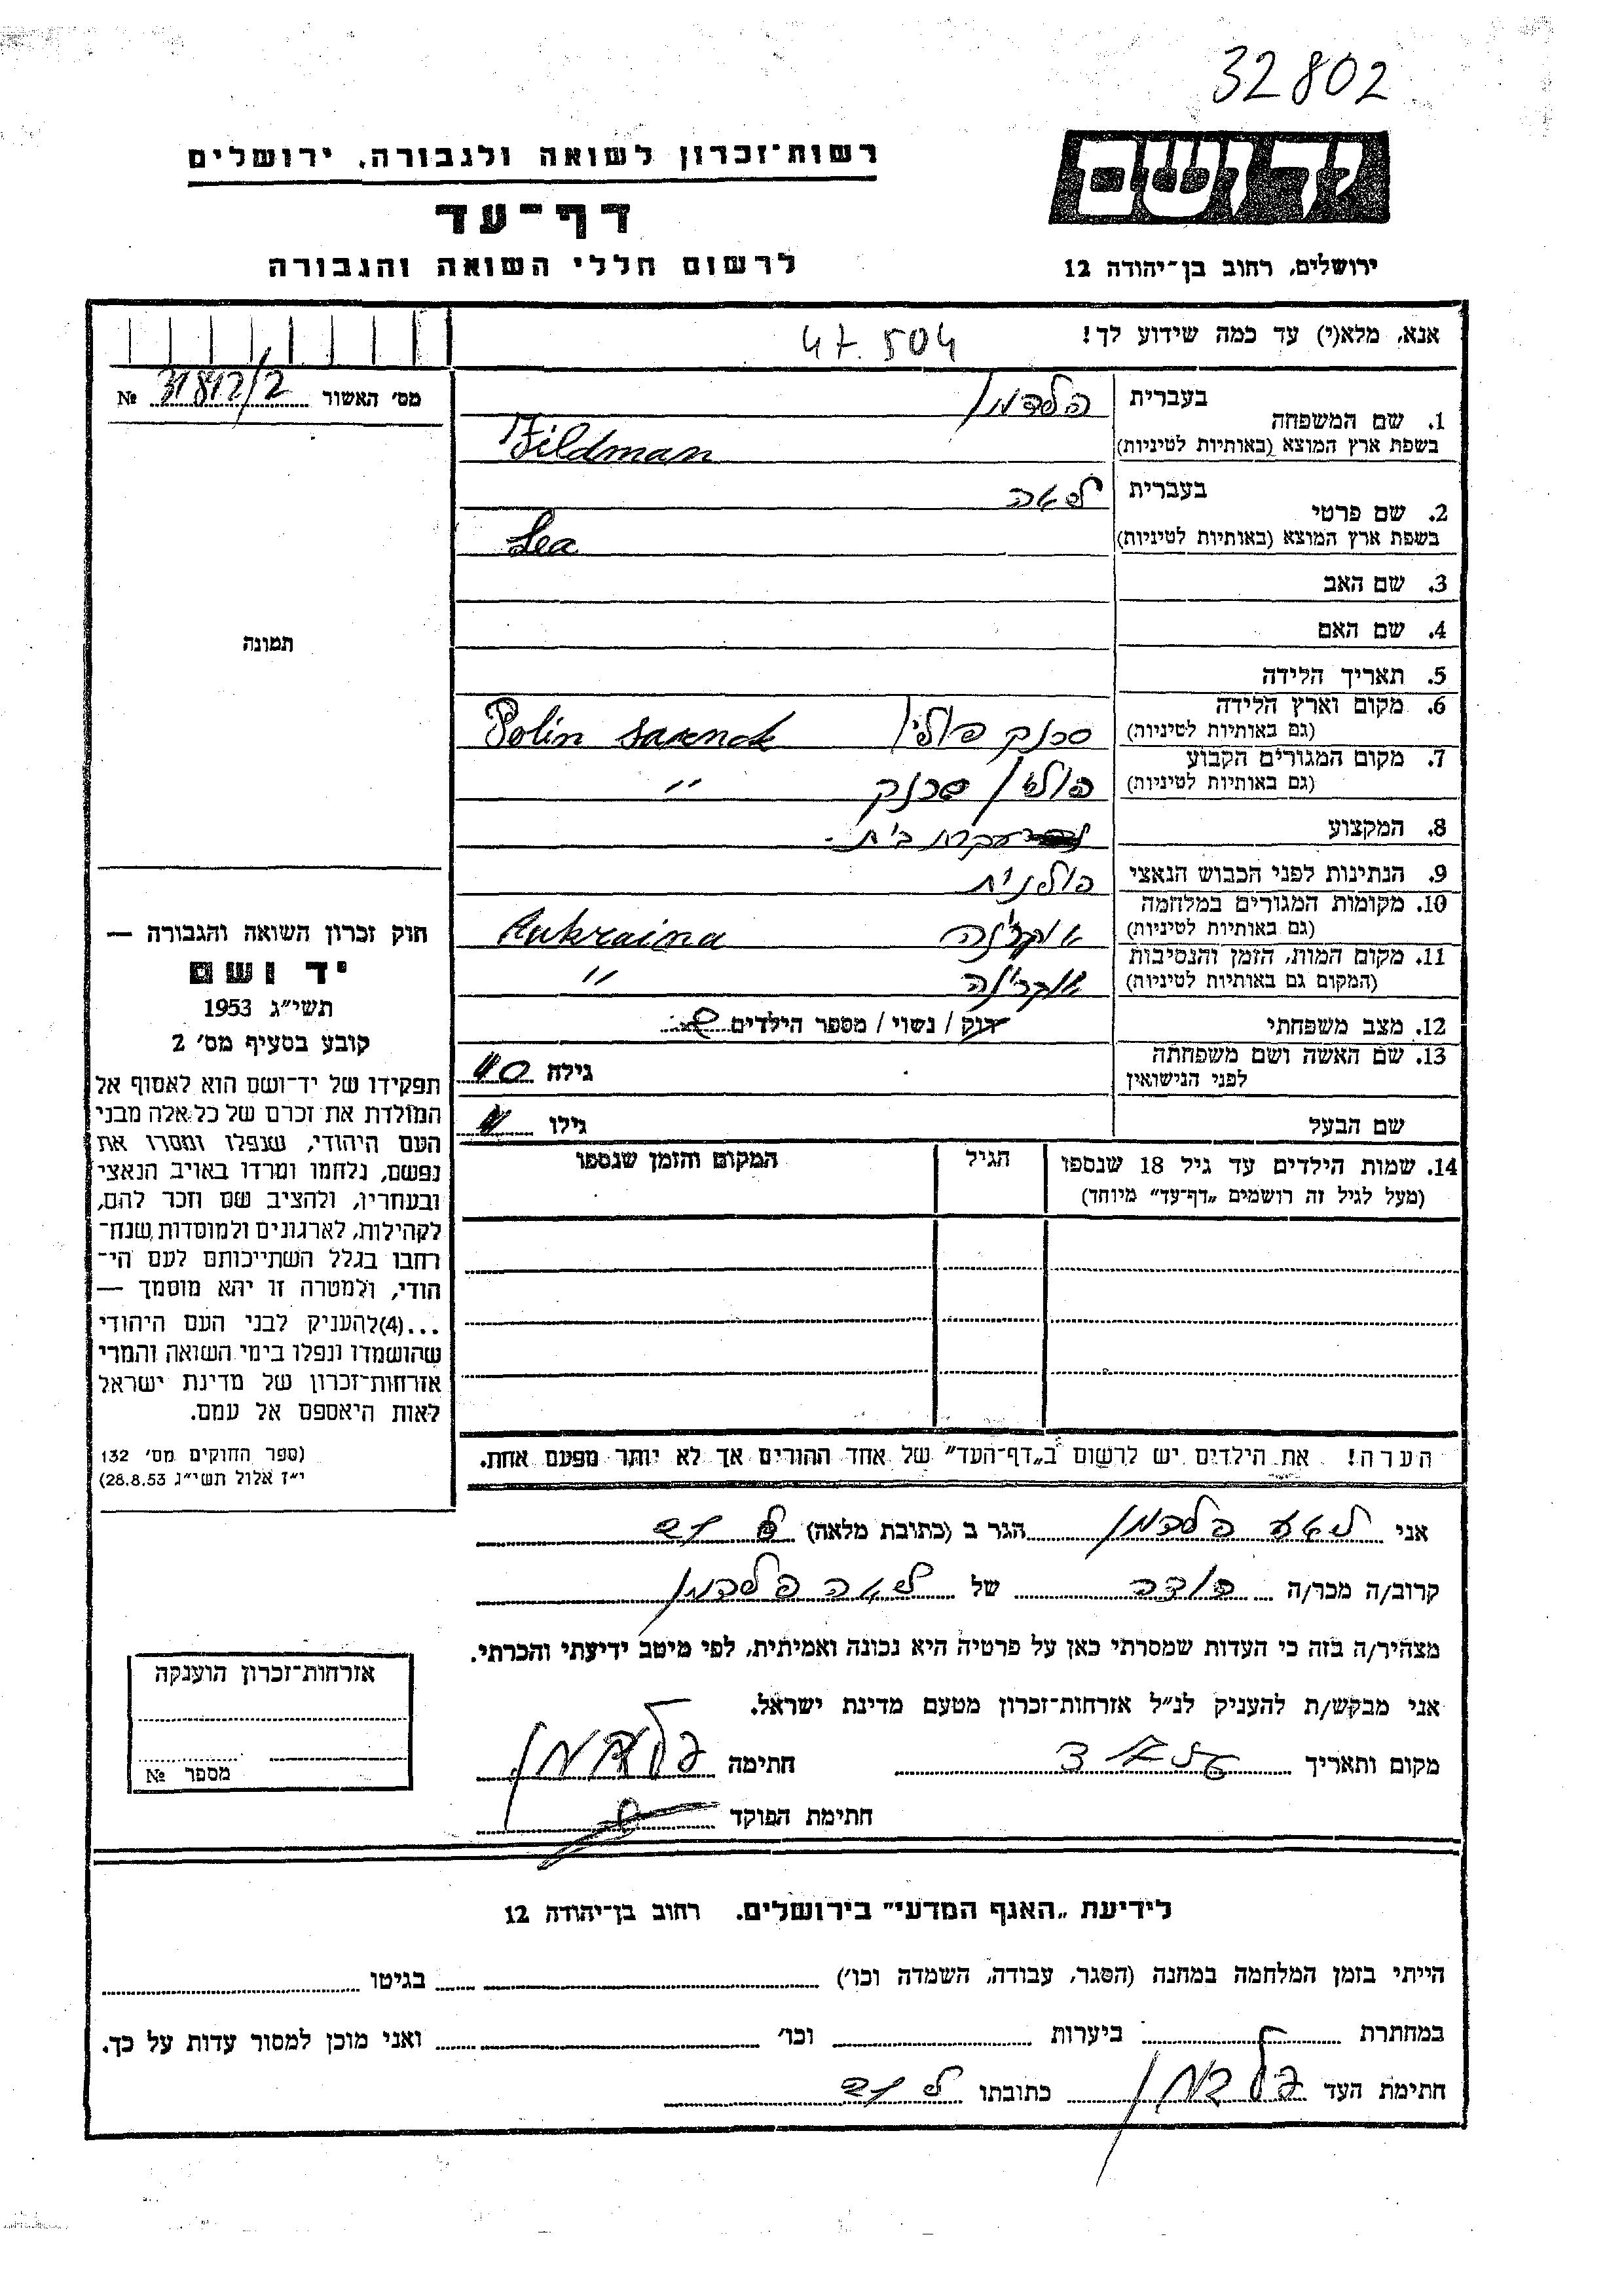 32802
יד ושם
רשות־זכרון לשואה ולגבורה, ירושלים
דף־עד
לרשום חללי השואה והגבורה
ירושלים, רחוב בן־יהודה 12
אנא, מלא(י) עד כמה שידוע לך!
47.504
מס׳ האשור 31812/2 №
1. שם המשפחה
בעברית פלדמן
בשפת ארץ המוצא (באותיות לטיניות) Fildman
2. שם פרטי
בעברית לאה
בשפת ארץ המוצא (באותיות לטיניות) Lea
3. שם האב
4. שם האם
5. תאריך הלידה
6. מקום וארץ הלידה
(גם באותיות לטיניות) סרנק פולין Polin sarnok
7. מקום המגורים הקבוע
(גם באותיות לטיניות) פולין סרנק "
8. המקצוע עקרת בית
9. הנתינות לפני הכבוש הנאצי פולנית
10. מקומות המגורים במלחמה
(גם באותיות לטיניות) אוקרינה Aukraina
11. מקום המות, הזמן והנסיבות
(המקום גם באותיות לטיניות) אוקרינה "
12. מצב משפחתי רוק / נשוי / מספר הילדים
13. שם האשה ושם משפחתה
לפני הנישואין
גילה 40
שם הבעל
גילו
14. שמות הילדים עד גיל 18 שנספו
(מעל לגיל זה רושמים „דף־עד״ מיוחד)
הגיל
המקום והזמן שנספו
הערה! את הילדים יש לרשום ב„דף־העד״ של אחד ההורים אך לא יותר מפעם אחת.
תמונה
חוק זכרון השואה והגבורה —
יד ושם
תשי״ג 1953
קובע בסעיף מס׳ 2
תפקידו של יד־ושם הוא לאסוף אל
המולדת את זכרם של כל אלה מבני
העם היהודי, שנפלו ומסרו את
נפשם, נלחמו ומרדו באויב הנאצי
ובעוזריו, ולהציב שם וזכר להם,
לקהילות, לארגונים ולמוסדות שנח־
רבו בגלל השתייכותם לעם הי־
הודי, ולמטרה זו יהא מוסמך —
...(4) להעניק לבני העם היהודי
שהושמדו ונפלו בימי השואה והמרי
אזרחות־זכרון של מדינת ישראל
לאות היאספם אל עמם.
(ספר החוקים מס׳ 132
י״ז אלול תשי״ג 28.8.53)
אני לאה פלדמן הגר ב (כתובת מלאה)
קרוב/ה מכר/ה של לאה פלדמן
מצהיר/ה בזה כי העדות שמסרתי כאן על פרטיה היא נכונה ואמיתית, לפי מיטב ידיעתי והכרתי.
אני מבקש/ת להעניק לנ״ל אזרחות־זכרון מטעם מדינת ישראל.
מקום ותאריך חתימה פלדמן
חתימת הפוקד
אזרחות־זכרון הוענקה
מספר №
לידיעת „האגף המדעי״ בירושלים. רחוב בן־יהודה 12
הייתי בזמן המלחמה במחנה (הסגר, עבודה, השמדה וכו׳) בגיטו
במחתרת ביערות וכו׳ ואני מוכן למסור עדות על כך.
חתימת העד פלדמן כתובתו